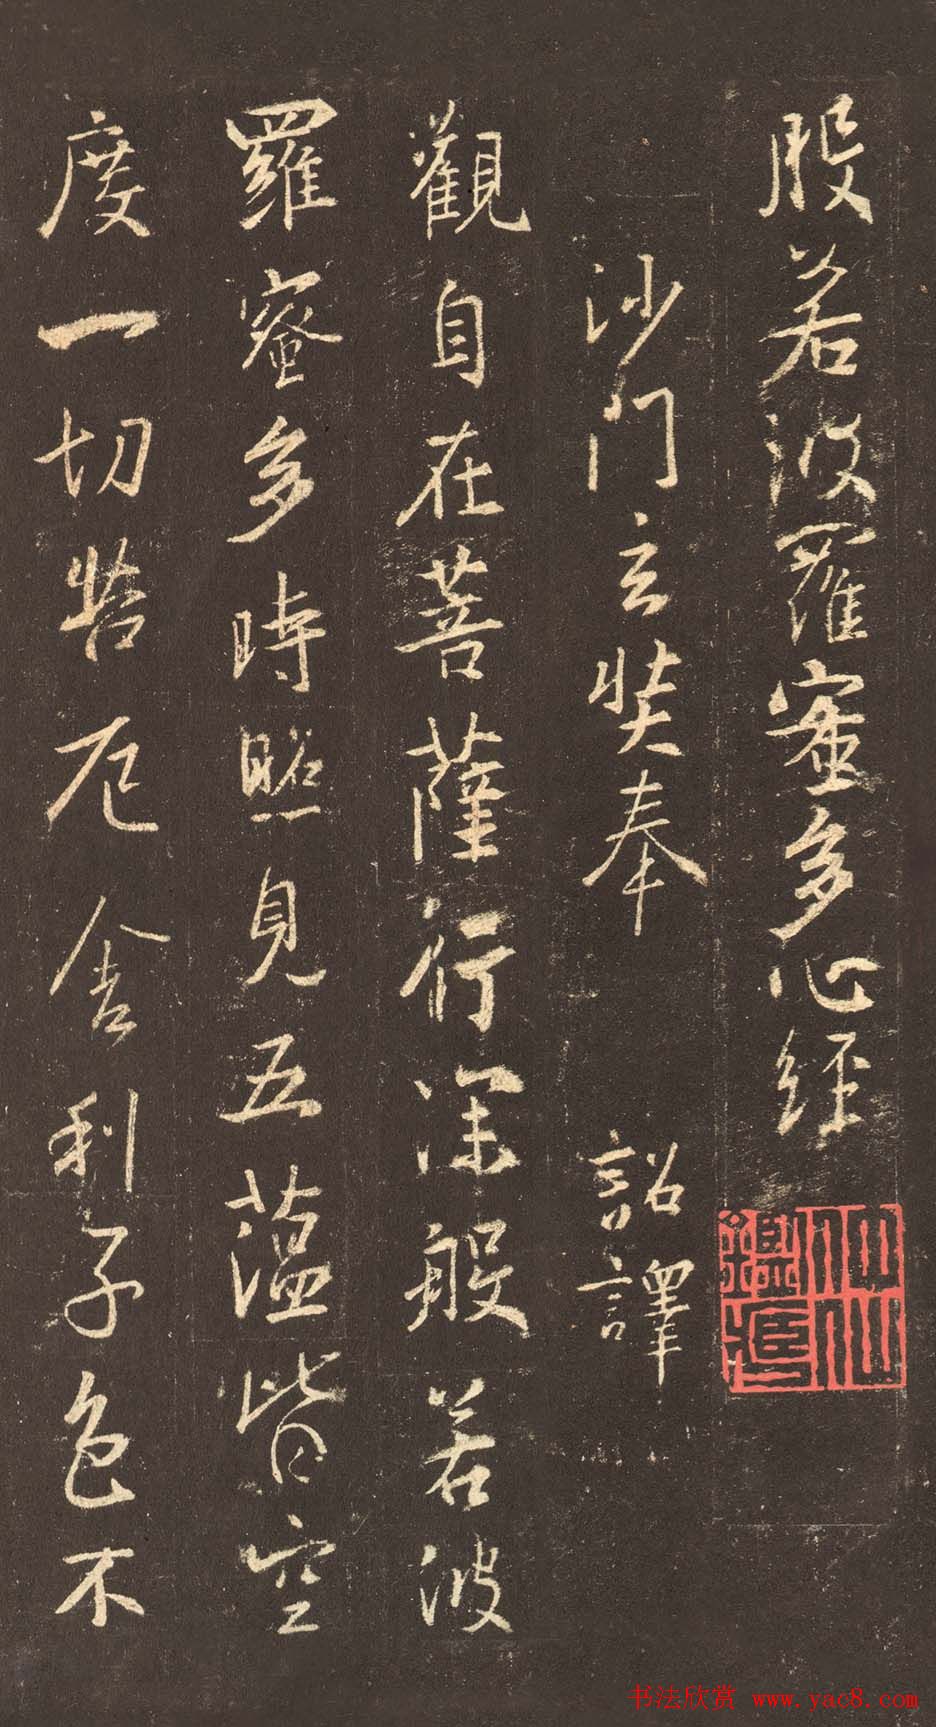 般若波羅蜜多心經
沙門玄奘奉 詔譯
觀自在菩薩行深般若波
羅蜜多時照見五蘊皆空
度一切苦厄舍利子色不
书法欣赏 www.yac8.com